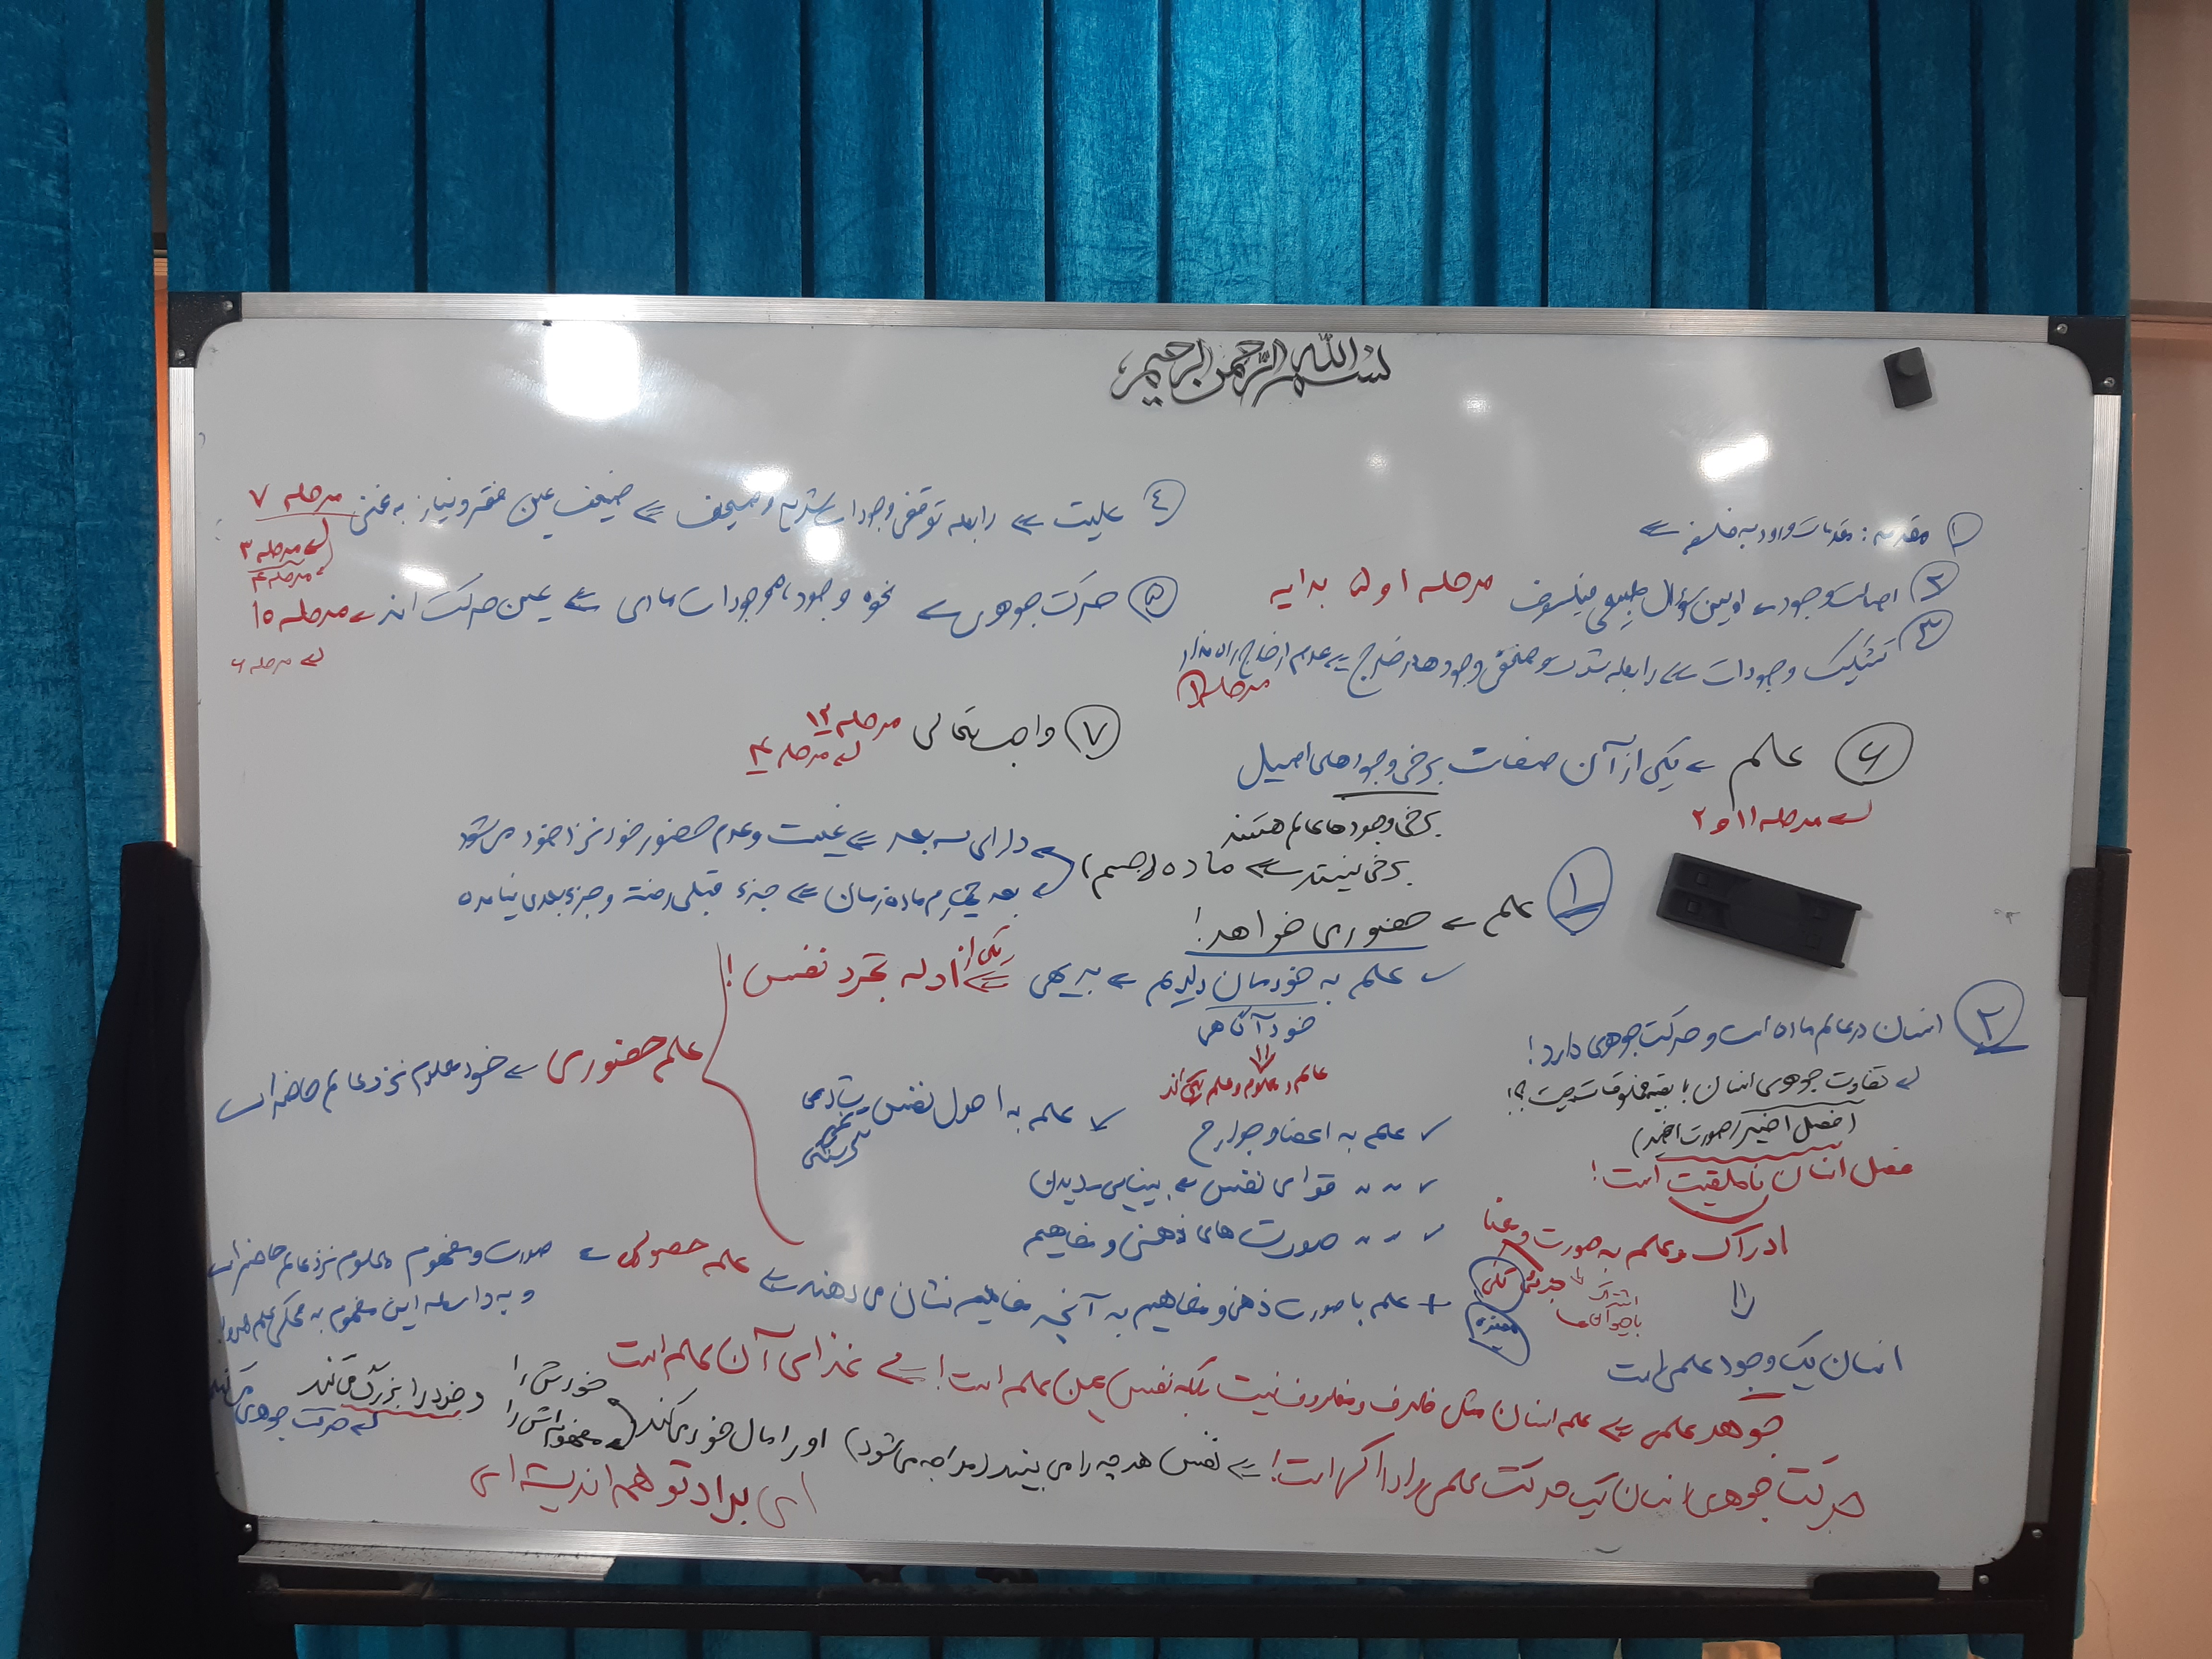 بسم الله الرحمن الرحیم
① مقدمه: مقدمات ورود به فلسفه ⇐
② اصالت وجود ← اولین سؤال طبیعی فیلسوف مرحله ۱ و ۵ بدایه
③ تشکیک وجودات ⇐ رابطه شدت و ضعفی وجودها در خارج ⇐ عدم در خارج راه ندارد
مرحله ۱
④ علیت ⇐ رابطه توقفی وجودات شدید و ضعیف ⇐ ضعیف عین فقر و نیاز به غنی مرحله ۷
مرحله ۳
مرحله ۴
⑤ حرکت جوهری ⇐ نحوه وجود موجودات مادی ⇐ عین حرکت اند ← مرحله ۱۰
مرحله ۶
⑥ علم ← یکی از آن صفات برخی وجودهای اصیل
مرحله ۱۱ و ۲
⑦ واجب تعالی مرحله ۱۲
مرحله ۴
برخی وجودها عالم هستند
برخی نیستند ⇐ ماده (جسم)
دارای سه بعد ⇐ غیبت و عدم حضور خود نزد خود می‌شود
بعد چهارم ماده زمان ⇐ جزء قبلی رفت و جزء بعدی نیامده
① علم ← حضور می خواهد!
✓ علم به خودمان داریم ← بدیهی ⇐ یکی از ادله تجرد نفس!
خودآگاهی
عالم و معلوم و علم یکی اند
✓ علم به اعضا و جوارح
✓ علم به احوال نفس شادی
گرسنگی
✓ " " قوای نفس ← بینایی
✓ " " صورت های ذهنی و مفاهیم
علم حضوری ← خود معلوم نزد عالم حاضر است
+ علم با صورت ذهنی و مفاهیم به آنچه مفاهیم نشان می دهند ⇐ علم حصولی ← صورت و مفهوم معلوم نزد عالم حاضر است
و به واسطه این مفهوم به محکی علم دارد!
② انسان در عالم ماده است و حرکت جوهری دارد!
تفاوت جوهری انسان با بقیه مخلوقات چیست؟!
(فصل اخیر / صورت اخیر)
فصل انسان ناطقیت است!
ادراک و علم به صورت و معنا
جزئی کلی
اشتراک
با حیوان ها
انسان یک وجود علمی است
جوهر علمی ⇐ علم انسان مثل ظرف و مظروف نیست بلکه نفس عین علم است! ⇐ غذای آن علم است
حرکت جوهری انسان یک حرکت علمی و ادراکی است! ⇐ نفس هر چه را می بیند (مواجه می شود) او را مال خود می کند
خودش را
مفهومش را
و خود را بزرگ می کند
حرکت جوهری می کند
ای برادر تو همه اندیشه ای